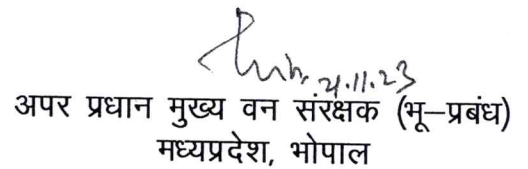 21.11.23
अपर प्रधान मुख्य वन संरक्षक (भू–प्रबंध)
मध्यप्रदेश, भोपाल